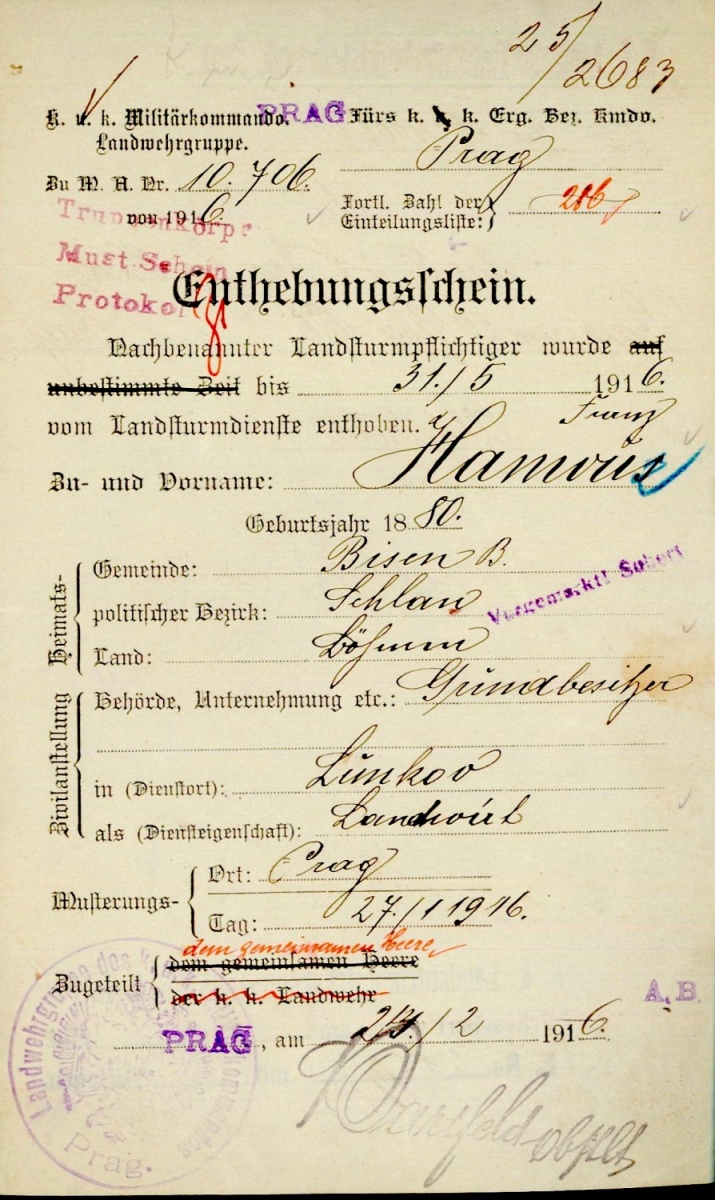 25/2683
K. u. k. Militärkommando. PRAG Fürs k. k. Erg. Bez. Kmdo.
Landwehrgruppe. Prag
Zu M. A. Nr. 10.706.
von 1916. Fortl. Zahl der Einteilungsliste: 216
Truppenkörper
Must Schein
Protokol
Enthebungsschein.
Nachbenannter Landsturmpflichtiger wurde auf
unbestimmte Zeit bis 31./5 1916.
vom Landsturmdienste enthoben. Franz
Zu- und Vorname: Hamous
Geburtsjahr 1880.
Heimats-
Gemeinde: Bisen B.
politischer Bezirk: Schlan
Land: Böhmen
Zivilanstellung
Behörde, Unternehmung etc.: Grundbesitzer
in (Dienstort): Lunkov
als (Diensteigenschaft): Landwirt
Musterungs-
Ort: Prag
Tag: 27./1 1916.
dem gemeinsamen Heere
Zugeteilt dem gemeinsamen Heere
der k. k. Landwehr
A.B.
PRAG, am 23./2 1916.
Landwehrgruppe des k.
Prag.